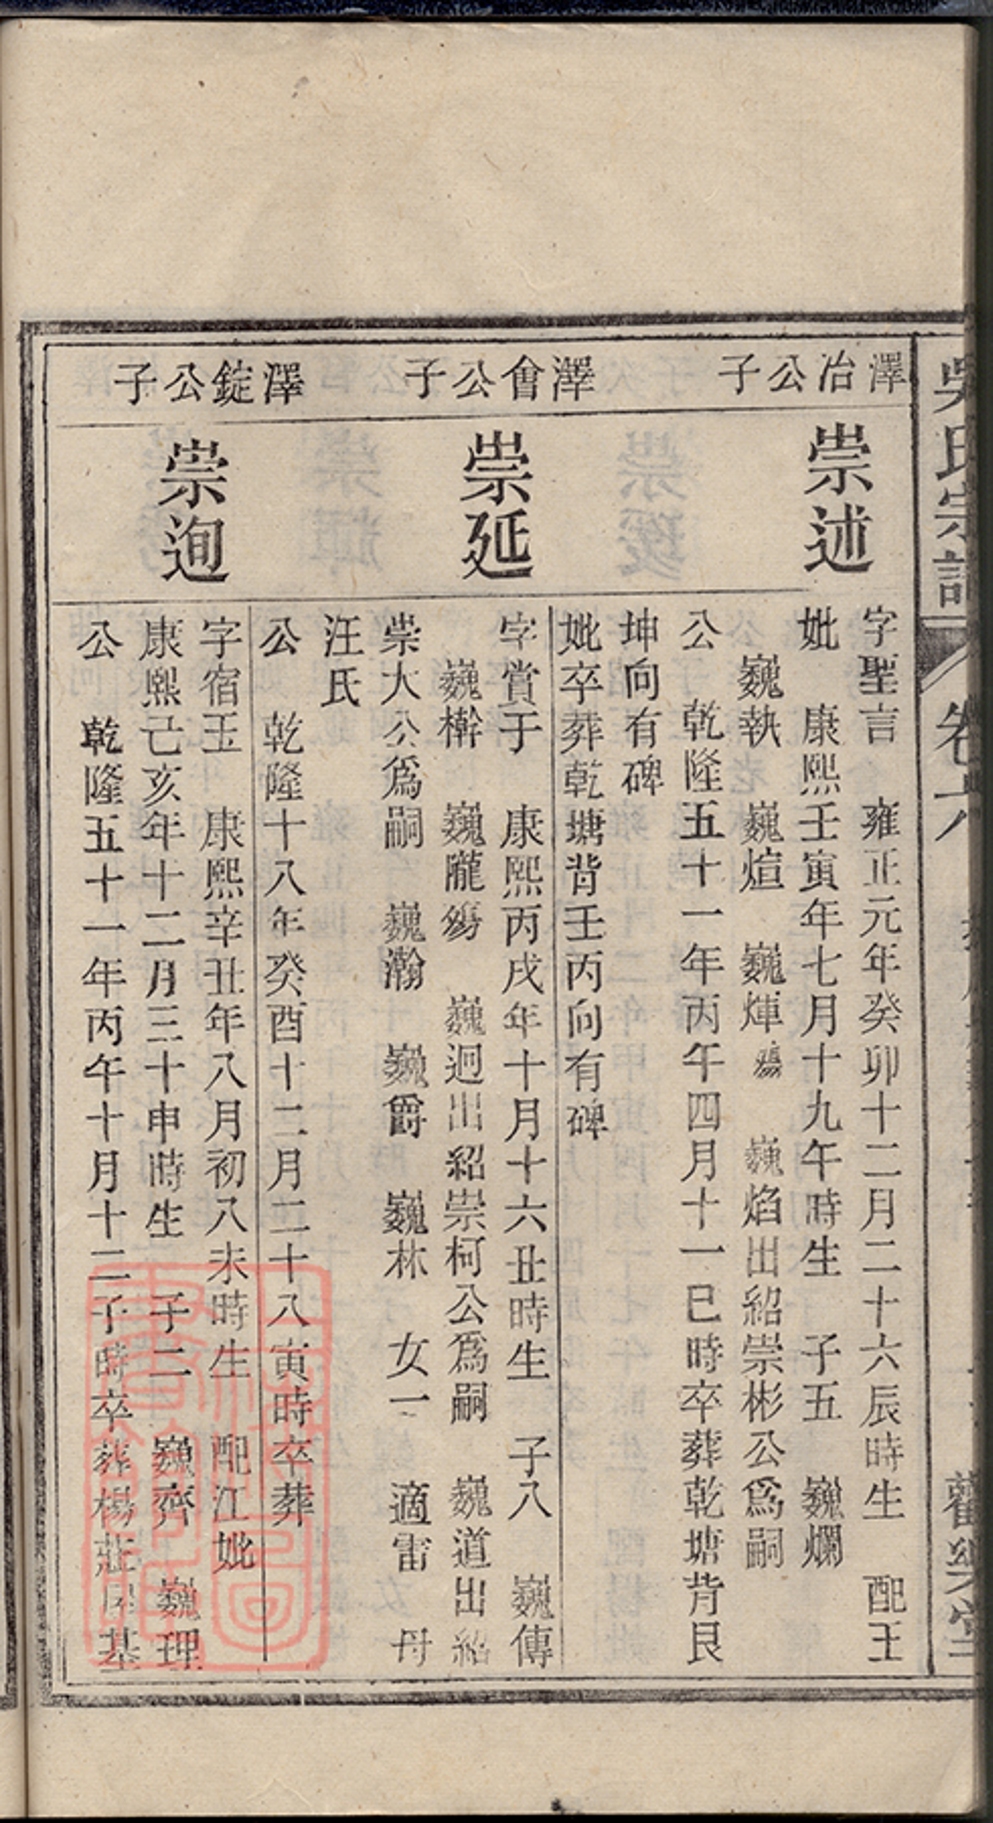 吳氏宗譜
卷六
澤冶公子
崇述
字聖言 雍正元年癸卯十二月二十六辰時生 配王
妣 康熙壬寅年七月十九午時生 子五 巍爛
巍執 巍煊 巍煇殤 巍焰出紹崇彬公爲嗣
公 乾隆五十一年丙午四月十一巳時卒葬乾塘背艮
坤向有碑
妣卒葬乾塘背壬丙向有碑
澤會公子
崇延
字賞于 康熙丙戌年十月十六丑時生 子八 巍傳
巍㭱 巍隴殤 巍迥出紹崇柯公爲嗣 巍道出紹
崇大公爲嗣 巍瀚 巍爵 巍林 女一 適雷 母
汪氏
公 乾隆十八年癸酉十二月二十八寅時卒葬
澤錠公子
崇迿
字宿玉 康熙辛丑年八月初八未時生 配江妣
康熙己亥年十二月三十申時生 子二 巍齊 巍理
公 乾隆五十一年丙午十月十二子時卒葬楊莊屋基